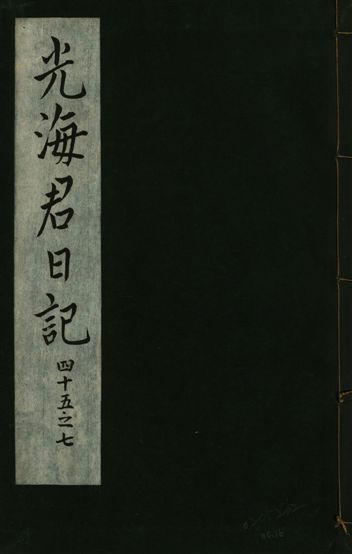 光海君日記
四十五之七